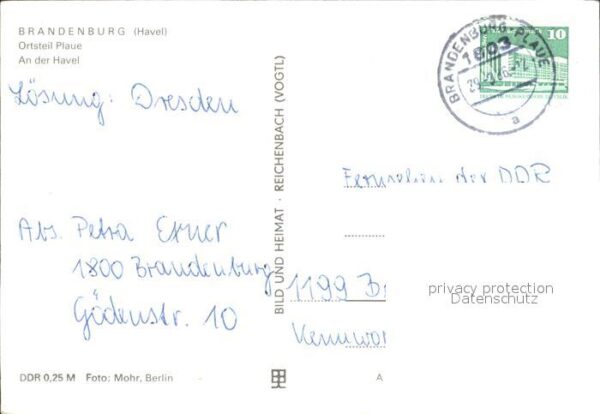 BRANDENBURG (Havel)
Ortsteil Plaue
An der Havel
Lösung: Dresden
Abs. Petra Exner
1800 Brandenburg
Gödenstr. 10
DDR 0,25 M Foto: Mohr, Berlin
BILD UND HEIMAT · REICHENBACH (VOGTL)
BRANDENBURG-PLAUE
1803
a
10
Fernsehen der DDR
1199 B
Kennwor
A
privacy protection
Datenschutz